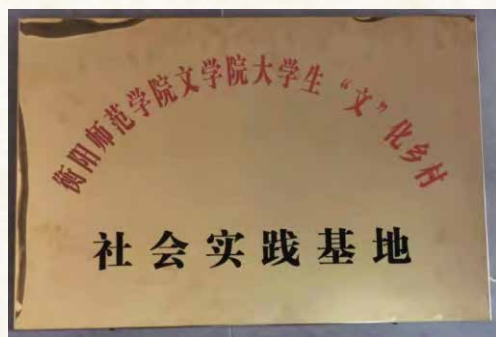 衡阳师范学院文学院大学生“文”化乡村
社会实践基地